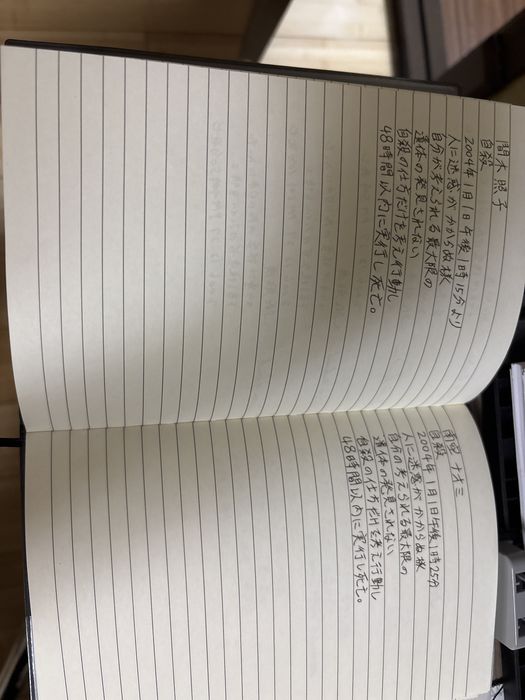 間木 照子
自殺
2004年1月1日午後1時15分より
人に迷惑がかからぬ様
自分が考えられる最大限の
遺体の発見されない
自殺の仕方だけを考え行動し
48時間以内に実行し死亡。
南空 ナオミ
自殺
2004年1月1日午後1時25分
人に迷惑がかからぬ様
自分の考えられる最大限の
遺体の発見されない
自殺の仕方だけを考え行動し
48時間以内に実行し死亡。